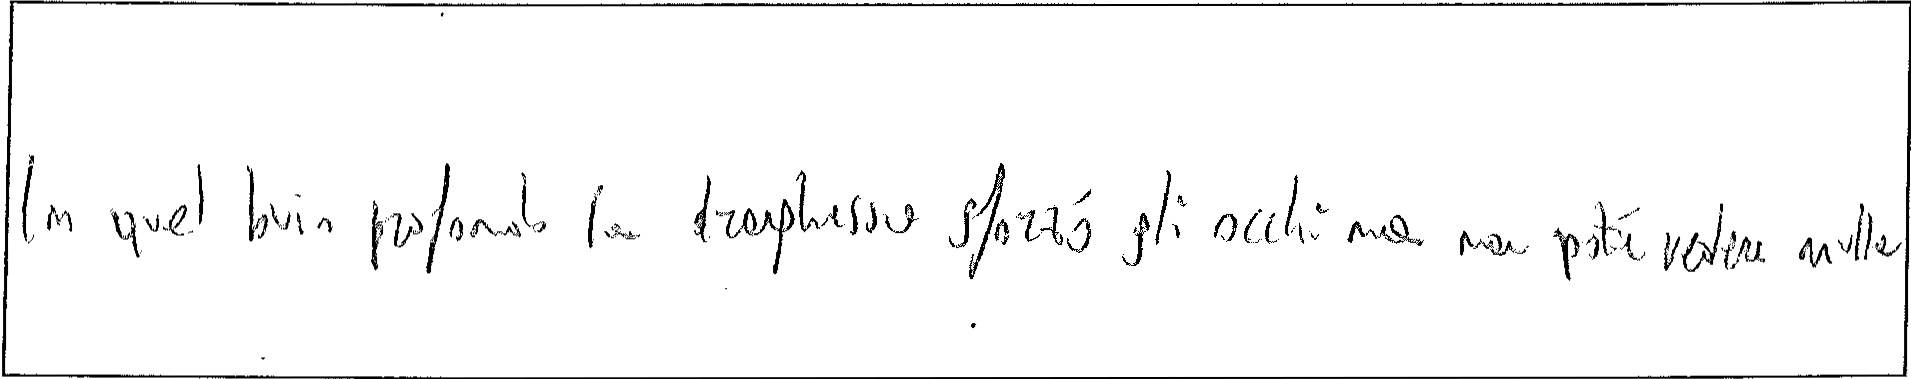 In quel buio profondo la draghessa sforzò gli occhi ma non poté vedere nulla